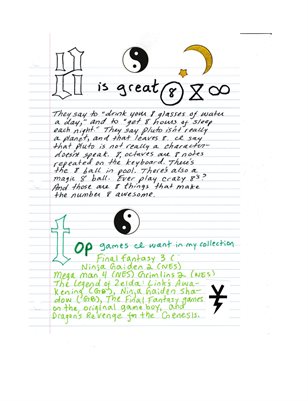 8 is great 8 ∞
They say to "drink your 8 glasses of water
a day," and to "get 8 hours of sleep
each night." They say Pluto isn't really
a planet, and that leaves 8. I say
that Pluto is not really a character-
doesn't speak. 8, octaves are 8 notes
repeated on the keyboard. There's
the 8 ball in pool. There's also a
magic 8 ball. Ever play crazy 8s?
And those are 8 things that make
the number 8 awesome.
top games I want in my collection
Final Fantasy 3 (
Ninja Gaiden 2 (NES)
Mega man 4 (NES) Gremlins 2 (NES)
The Legend of Zelda: Link's Awa-
kening (GB), Ninja Gaiden Sha-
dow (GB), The Final Fantasy games
on the original game boy, and
Dragon's Revenge for the Genesis.